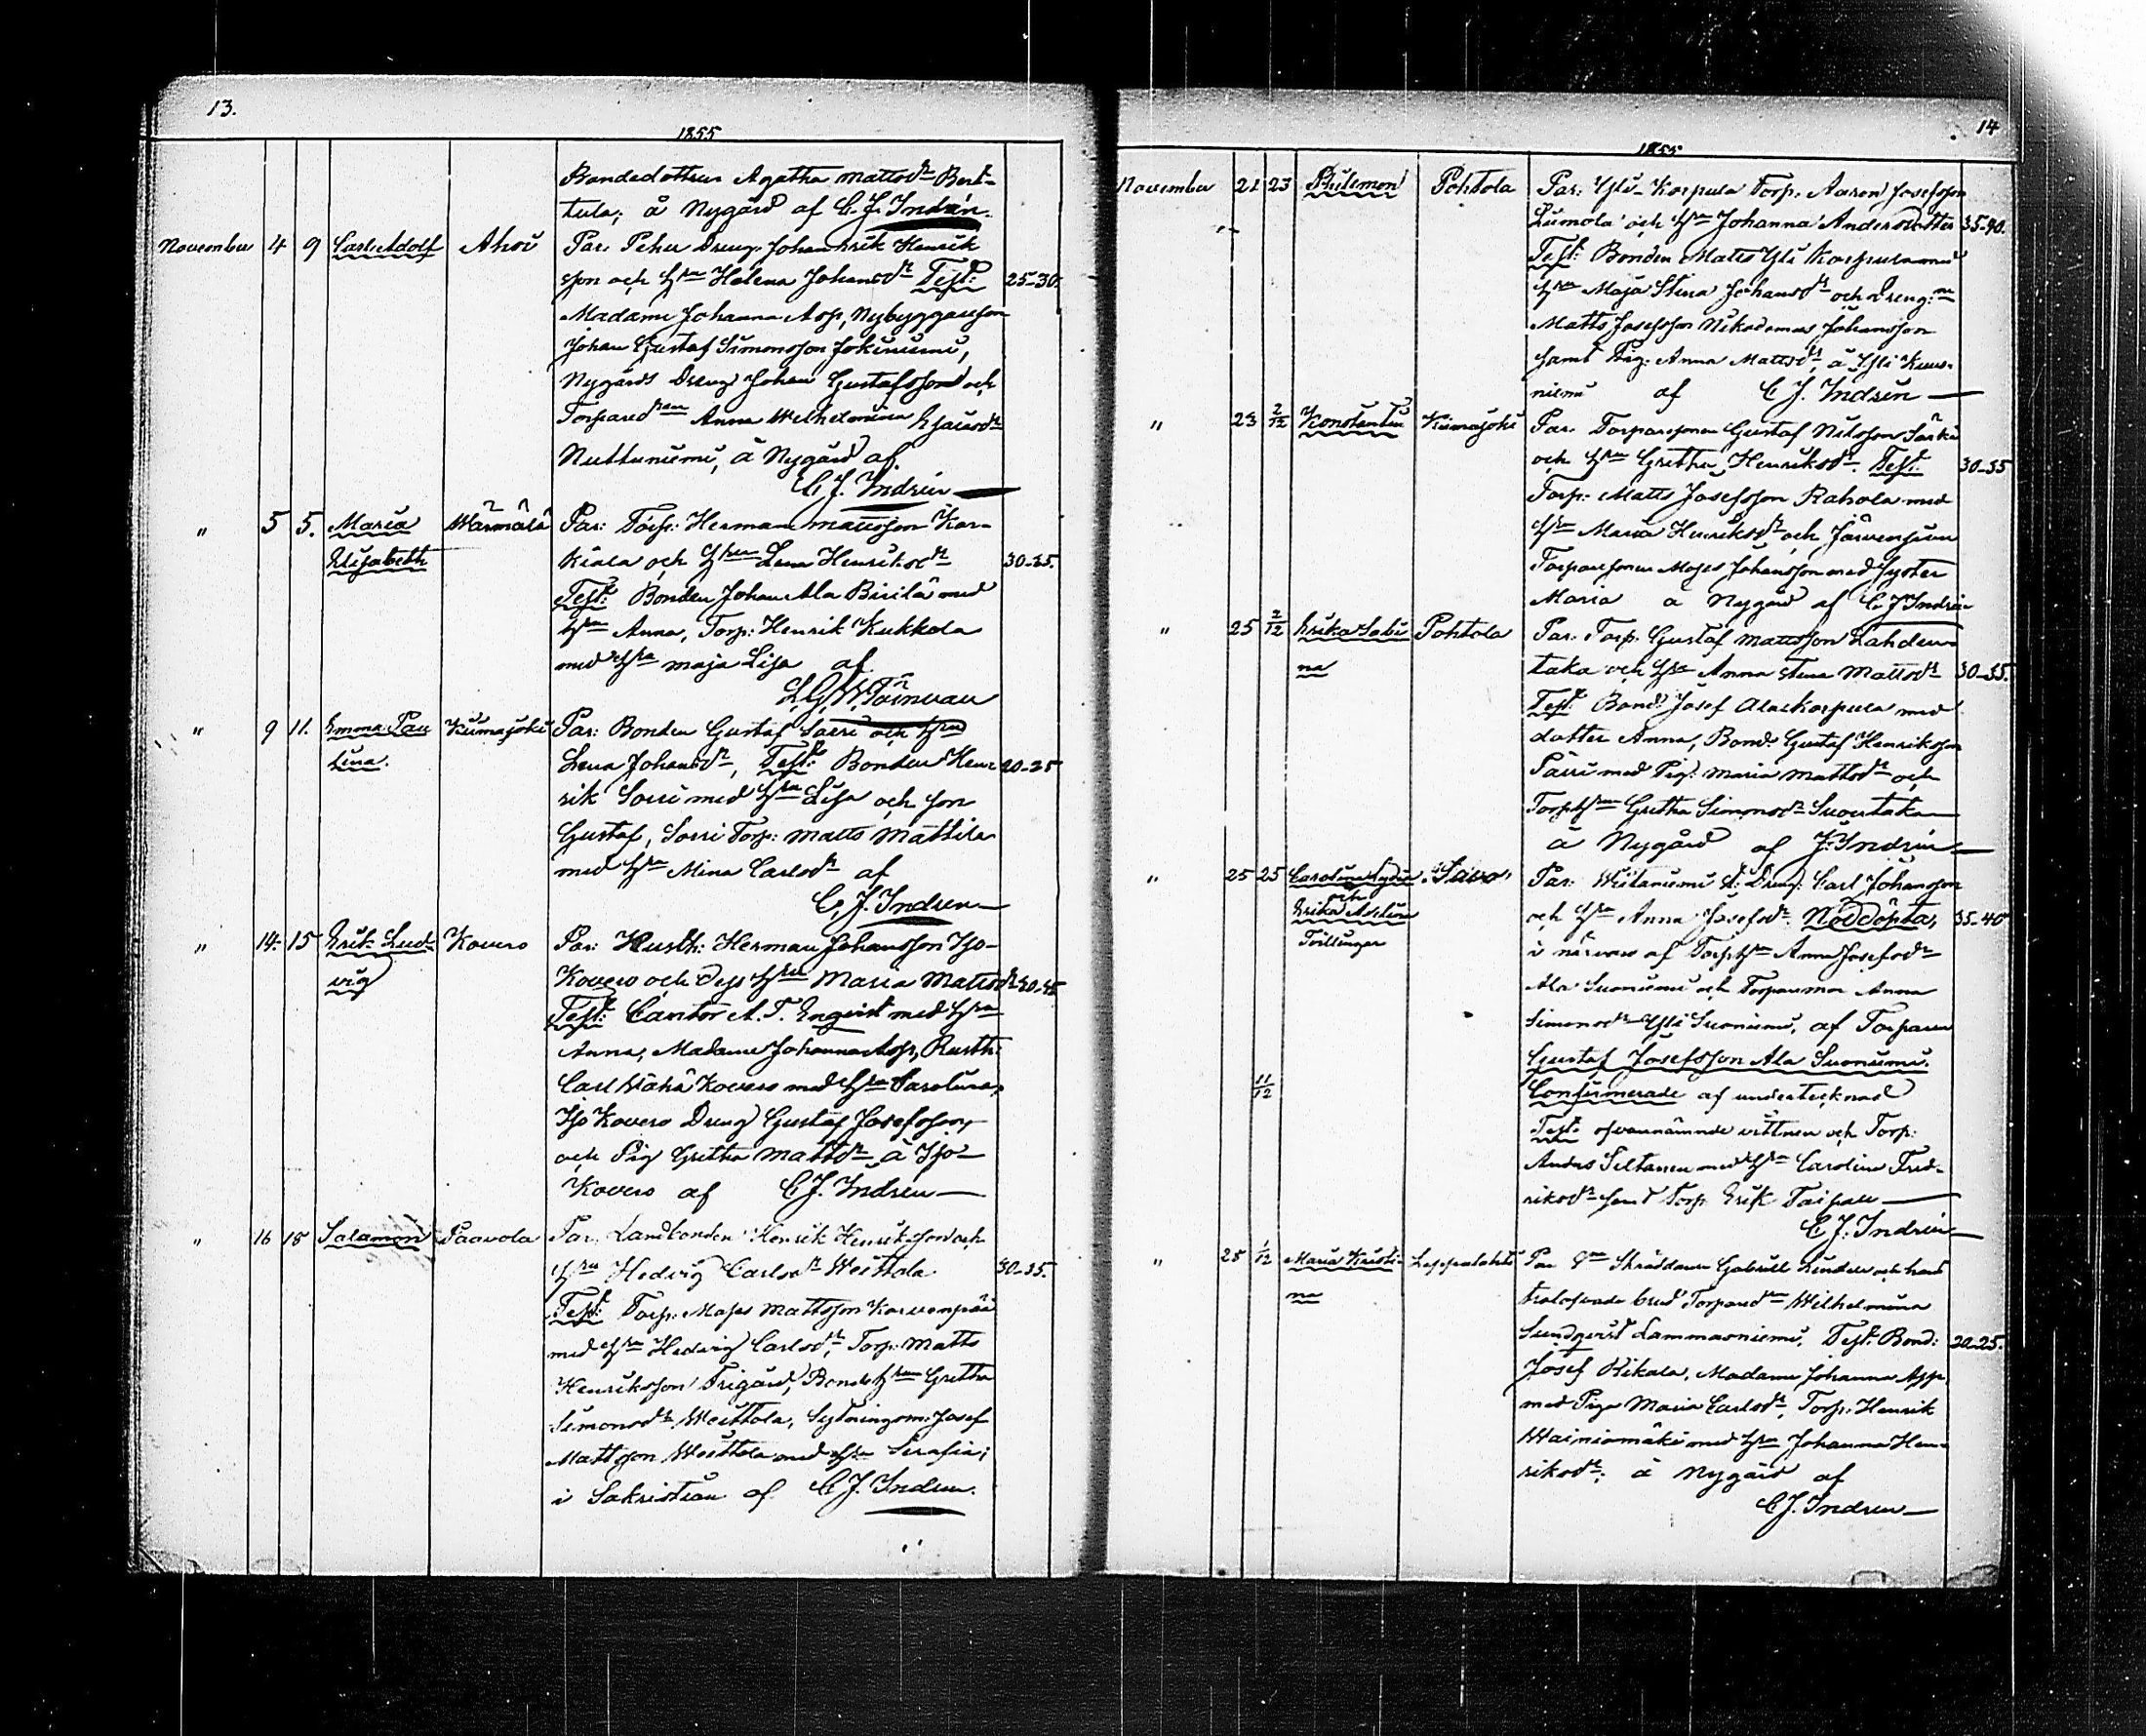 13.
1855
Bondedottren Agatha Mattsdr Bert-
tula; å Nygård af C. J. Indrén.
November 4 9 Carl Adolf Ahoi Par. Dreng. Henrik
son och Hru Helena Johansdr Test: 25-30.
Madame Johanna Asp, Nybyggaresson
Johan Gustaf Simonsson Jokiniemi,
Nygårds Dreng Johan Gustafsson och
Anna Wilhelmina
Nuttuniemi, å Nygård af
C. J. Indrén
" 5 5. Maria Par: Torp: Herman Mattsson Kar-
Elisabeth kiala och Hru Lena Henriksdr 30-35.
Test: Bonden Johan Ala Birilä med
Hru Anna, Torp: Henrik Kukkola
med Hru Maja Lisa af
L. G. W. Törnvall
" 9 11. Emma Pau Kiimajoki Par: Bonden Gustaf Sorri och Hru
lina. Lena Johansdr, Test: Bonden Hen- 20-25
rik Sorri med Hru Lisa och son
Gustaf, Sorri Torp: Matts Mattila
med Hru Mina Carlsdr af
C. J. Indren
" 14. 15 Erik Lud- Kovero Par: Rusth: Herman Johansson Iso-
vig Kovero och dess Hru Maria Mattsdr
Test: Cantor A. T. Engvist med Hru
Anna, Madame Johanna Asp, Rusth:
Carl Wähä Kovero med Hru Carolina,
Iso Kovero Dreng Gustaf Josefsson,
och Pig Gretha Mattsdr å Iso-
Kovero af C. J. Indren
" 16 18 Salamon Paavola Par. Landbonden Henrik Henriksson och
Hru Hedvig Carlsdr Weittola 30-35.
Test: Torp: Moses Mattsson Korvenpää
med Hru Hedvig Carlsdr, Torp: Matts
Henriksson Frigård, Bonde Hrun Gretha
Simonsdr Weittola, Sytningsm: Josef
Mattsson Weittola med Hru Serafia;
i Sakristian af C. J. Indren.
14
1855
November 21 23 Philemon Pohtola Par: Yli-Korpula Torp: Aaron Josefsson
Liimola och Hru Johanna Andersdotter 35-40.
Test: Bonden Matts Yli Korpula med
Hru Maja Stina Johansdr och Dreng:ne
Matts Josefsson Nikodemus Johansson
samt Pig: Anna Mattsdr, å Yli Kuus-
niemi af C. J. Indrén
" 23 2/12 Konstantin Kiimajoki Par. Torparsonen Gustaf Nilsson Särki
och Hru Gretha Henriksdr. Test. 30-35
Torp: Matts Josefsson Rahola med
Hru Maria Henriksdr och Järvensivu
Torparsonen Moses Johansson med Syster
Maria å Nygård af C J Indrén
" 25 2/12 Erika Sabi Pohtola Par. Torp. Gustaf Mattsson Lahden-
na taka och Hru Anna Stina Mattsdr 30-35.
Test: Bond: Josef Alaskorpula med
dotter Anna, Bond: Gustaf Henriksson
Pärri med Pig: Maria Mattsdr och
Torp Hrun Gretha Simonsdr Suontaka
å Nygård af J. Indrén
" 25 25 Carolina Lydia Savo Par: Wiitaniemi Dreng: Carl Johansson
och och Hru Anna Josefsdr. Nöddöpta, 35-40
Erika Adelina i närvaro af Torp Hru Anna Josefsdr
Tvillingar Ala Suoniemi och Anna
Simonsdr Yli Suoniemi, af Torparen
Gustaf Josefsson Ala Suoniemi.
11/12 Confirmerade af undertecknad
Test: ofvannämnde vittnen och Torp:
Anders Siltanen med Hru Carolina Fred-
riksdr samt Torp. Erik Taipale
C. J. Indrén
" 25 1/12 Maria Kristi- Leppälahti Par Skräddaren Gabriel Lindell och hans
na trolofvade brud Wilhelmina
Sundqvist Lammasniemi. Test. Bond: 20-25.
Josef Rikala, Madame Johanna Asp
med Piga Maria Carlsdr, Torp: Henrik
Wainiomäki med Hru Johanna Hen-
riksdr: å Nygård af
C. J. Indren